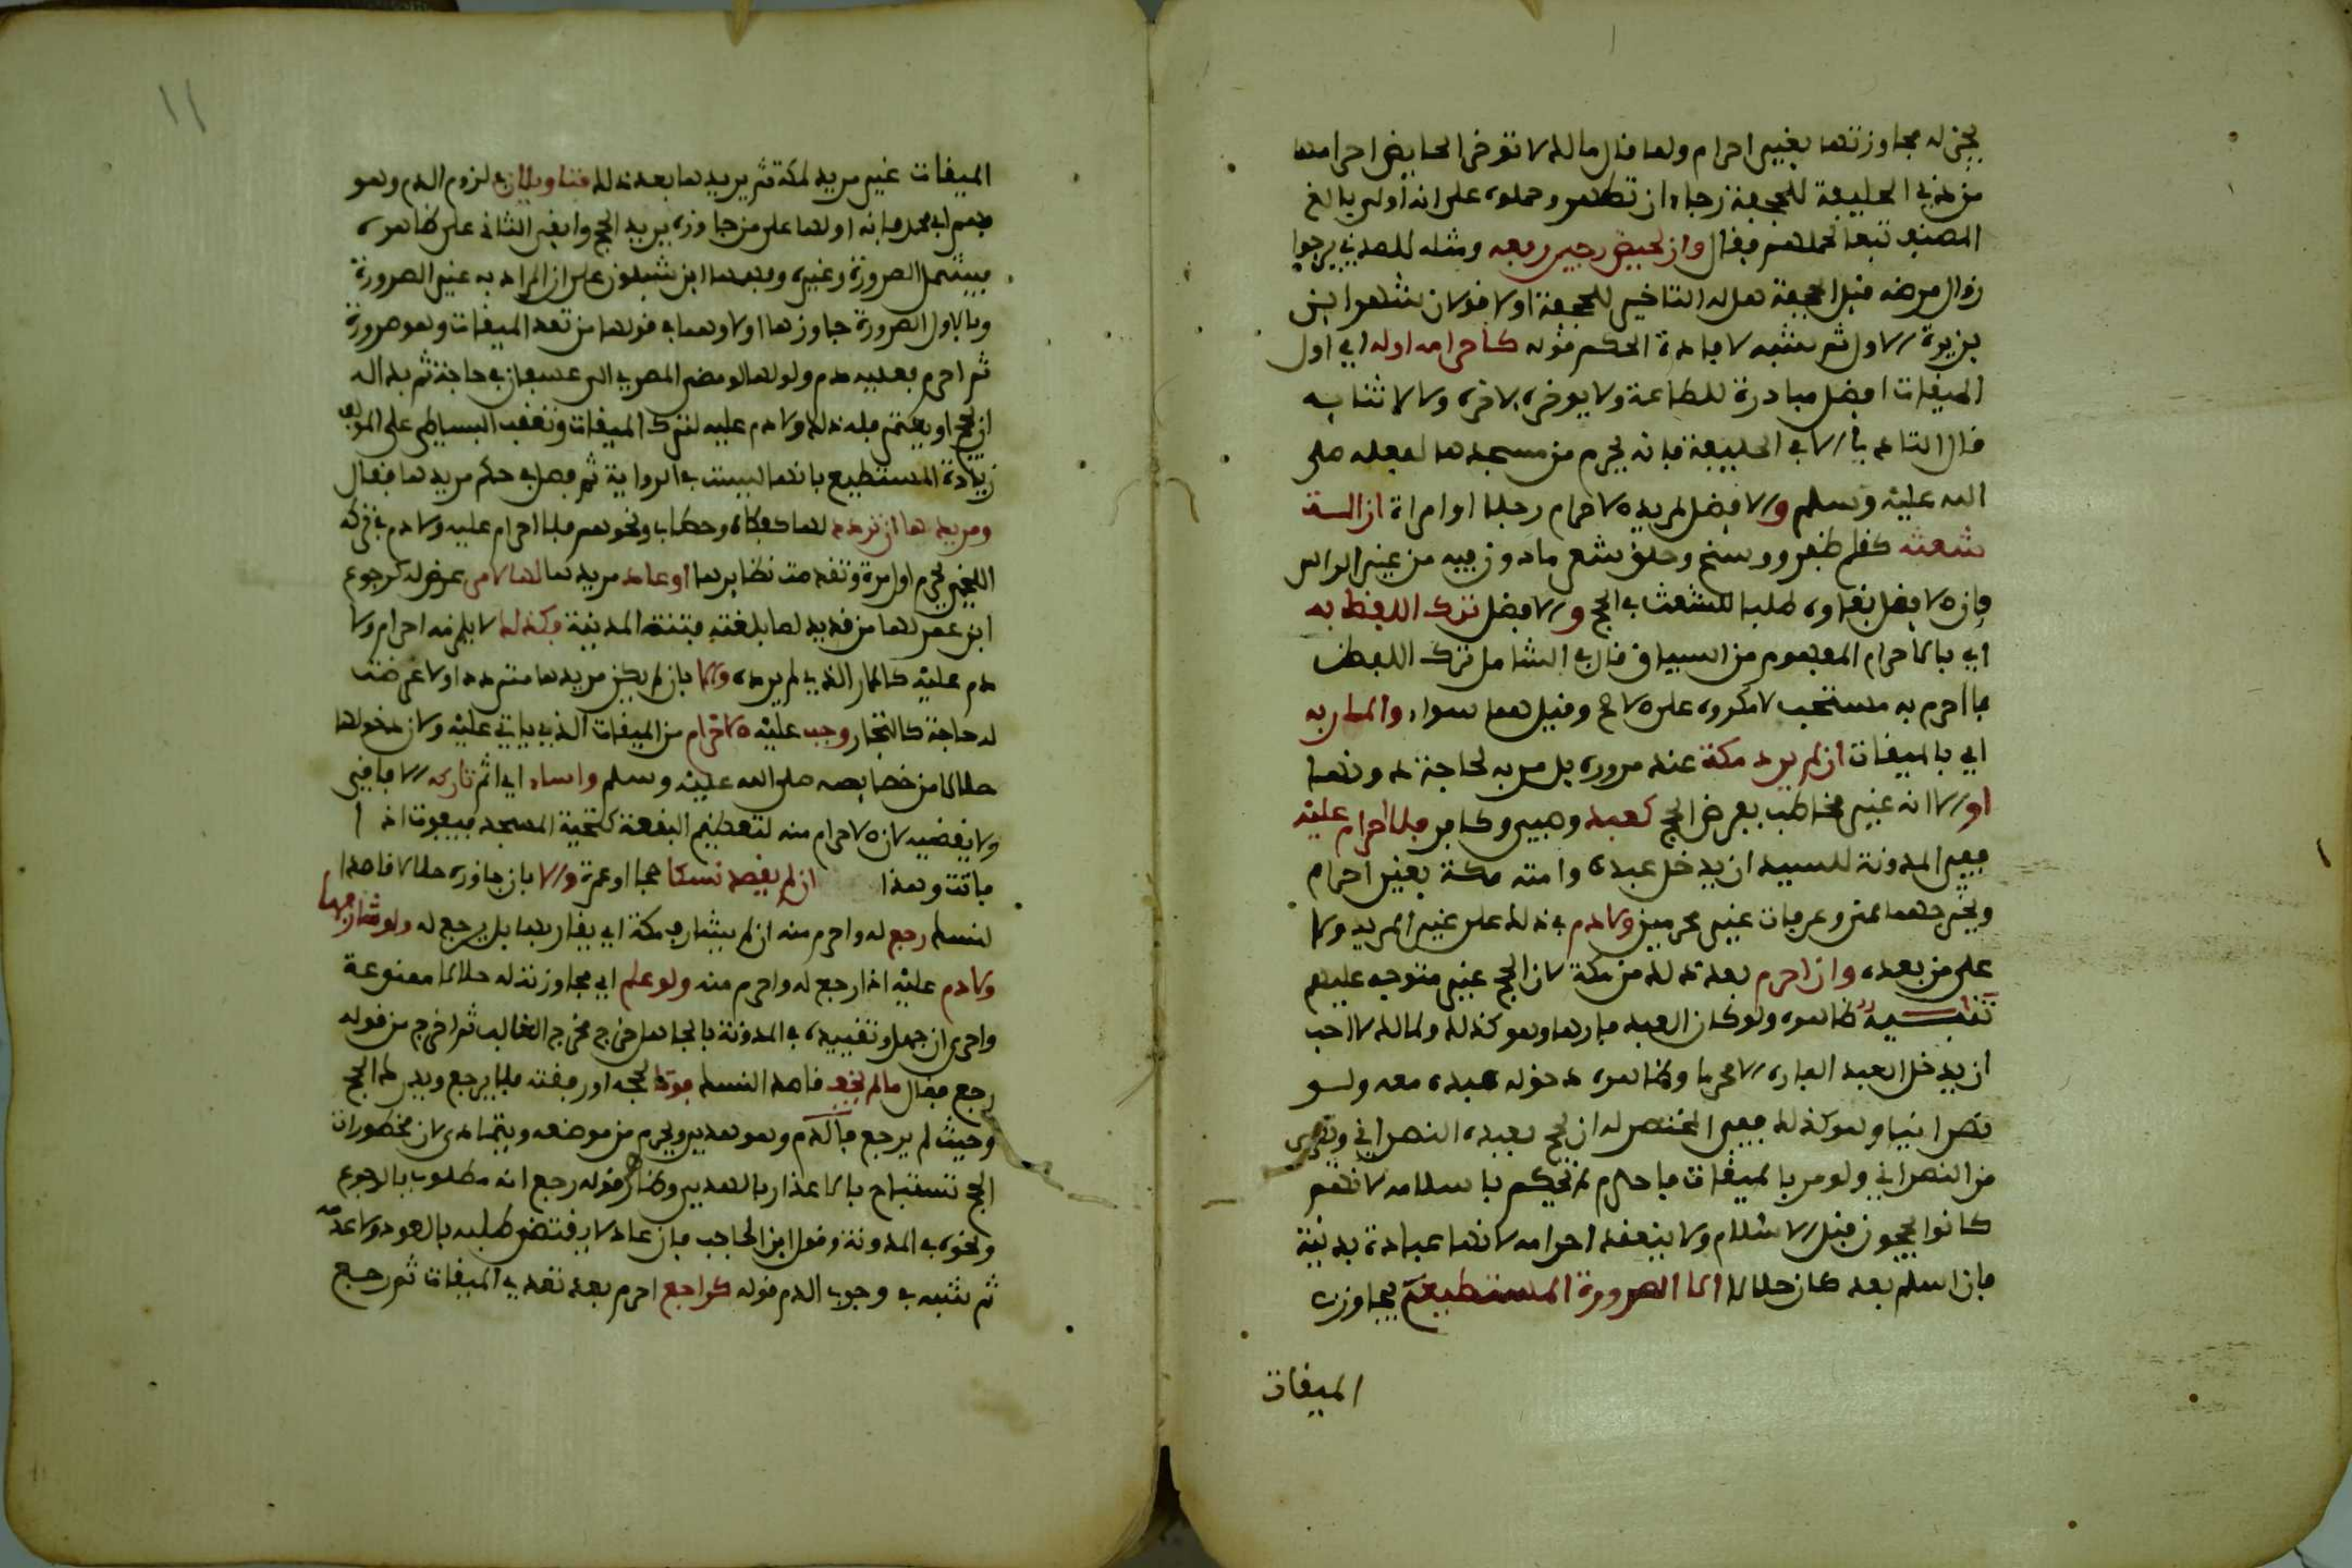 يجز له مجاوزتها بغير احرام ولهذا قال مالك لا توخر الحايض احرامها
من ذي الحليفة للجحفة رجاء ان تطهر وحملوه على انه اولى بالغ
المصنف تبعا لحملهم فقال وان لحيض رجي رفعه ومثله للمدني يرجوا
زوال مرضه قبل الجحفة هل له التاخير للجحفة او لا قولان شهر ابن
بزيزة الاول ثم شبه لافادة الحكم قوله كاحرامه اوله اي اول
الميقات افضل مبادرة للطاعة ولا يوخره لاخره وسالا ثنا به
قال التادلي الا في الحليفة فانه يحرم من مسجدها لفعله صلى
الله عليه وسلم والافضل لمريد الاحرام رجلا او امراة ازالة
شعثه كقلم ظفر ووسخ وحلق شعر ما دون فيه من غير الراس
فان الافضل بقاوه طلبا للشعث في الحج والافضل ترك اللفظ به
اي بالاحرام المفهوم من السياق قال في الشامل ترك اللفظ
بما احرم به مستحب لا مكروه على الاصح وقيل هما سواء والمار به
اي بالميقات ان لم يرد مكة عند مروره بل مر به لحاجة دونها
او الا انه غير مخاطب بفرض الحج كعبد وصبي وكافر فلا احرام عليه
ففي المدونة للسيد ان يدخل عبده وامته مكة بغير احرام
ويخرجهما لمنى وعرفات غير محرمين ولا دم في ذلك على غير المريد ولا
على من بعده وان احرم بعد ذلك من مكة لان الحج غير متوجه عليهم
تنبيه ظاهره ولو كان العبد فارها وهو كذلك ولمالك الاحب
ان يدخل العبد الفاره الا محرما وظاهره دخوله عبده معه ولو
نصرانيا وهو كذلك ففي المختصر له ان يحج بعبده النصراني
من النصراني ولو مر بالميقات فاحرم لم نحكم باسلامه لانهم
كانوا يحجون قبل الاسلام ولا ينعقد احرامه لانها عبادة بدنية
فان اسلم بعد كان حلالا الا الصرورة المستطيع يجاوز
الميقات
١١
الميقات غير مريد لمكة ثم يريدها بعد ذلك فتاويلان لزوم الدم وهو
فهم ابي محمد فانه اولها على من جاوزه يريد الحج وابقى الثاني على ظاهره
فيشمل الصرورة وغيره وفهمها ابن شبلون على ان المراد به غير الصرورة
وبالاول الصرورة جاوزها اولا وهما في قولها من تعد الميقات وهو صرورة
ثم احرم فعليه دم ولقولها لو مضى المصري الى عسفان في حاجة ثم بدا له
ان يحج او يعتمر فله ذلك ولا دم عليه لترك الميقات وتعقب البساطي على المولف
زيادة المستطيع بانها ليست في الرواية ثم فصل في حكم مريدها فقال
ومريدها ان تردد لها كفكاه وحطاب ونحوهم فلا احرام عليه ولا دم في تركه
اللخمي يحرم اول مرة وتقدمت نظايرها او عاد مريدها لها لامر عرض له كرجوع
ابن عمر لها من قديد لما بلغته فتنة المدينة فكذلك لا يلزمه احرام ولا
دم عليه كالمار الذي لم يرده والا بان لم يكن مريدها متردد او لا عرضت
له حاجة كالتجار وجب عليه الاحرام من الميقات الذي ياتي عليه ولان دخولها
حلالا من خصايصه صلى الله عليه وسلم واساء اي اثم تاركه الافاقي
ولا يقضيه لان الاحرام منه لتعظيم البقعة كتحية المسجد فيفوت اذا
فاتت وهذا ان لم يقصد نسكا حجا او عمرة والا بان جاوزه حلالا قاصدا
لنسك رجع له واحرم منه ان لم يشارف مكة اي يقاربها بل يرجع له ولو شارفها
ولا دم عليه اذا رجع له واحرم منه ولو علم اي مجاوزته له حلالا ممنوعة
واحرى ان جهل وتقييده في المدونة بالجاهل خرج مخرج الغالب ثم اخرج من قوله
رجع فقال ما لم يخف قاصد النسك فوتا لحجه او رفقته فلا يرجع ويدرك الحج
وحيث لم يرجع فالدم وهو هدي ويحرم من موضعه ويتمادى لان محظورات
الحج تستباح بالاعذار بالهدي وظاهر قوله رجع انه مطلوب بالرجوع
ونحوه في المدونة وقول ابن الحاجب فان عاد لا يقتضي طلبه بالعود ولا عدمه
ثم شبه في وجوب الدم قوله كراجع احرم بعد تعدي الميقات ثم رجع